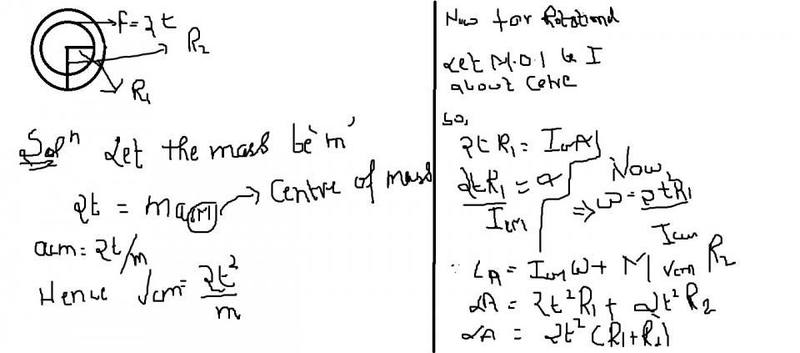 F = 2t
R2
R1
Solⁿ Let the mass be 'm'
2t = macm → Centre of mass
acm = 2t/m
Hence Vcm = 2t²/m
Now for Rotational
Let M.O.I be I
about Centre
So,
2t R1 = Icm α
2tR1/Icm = α
Now,
⇒ ω = 2tR1/Icm
∵ LA = Icm ω + M Vcm R2
LA = 2t²R1 + 2t²R2
LA = 2t² (R1+R2)